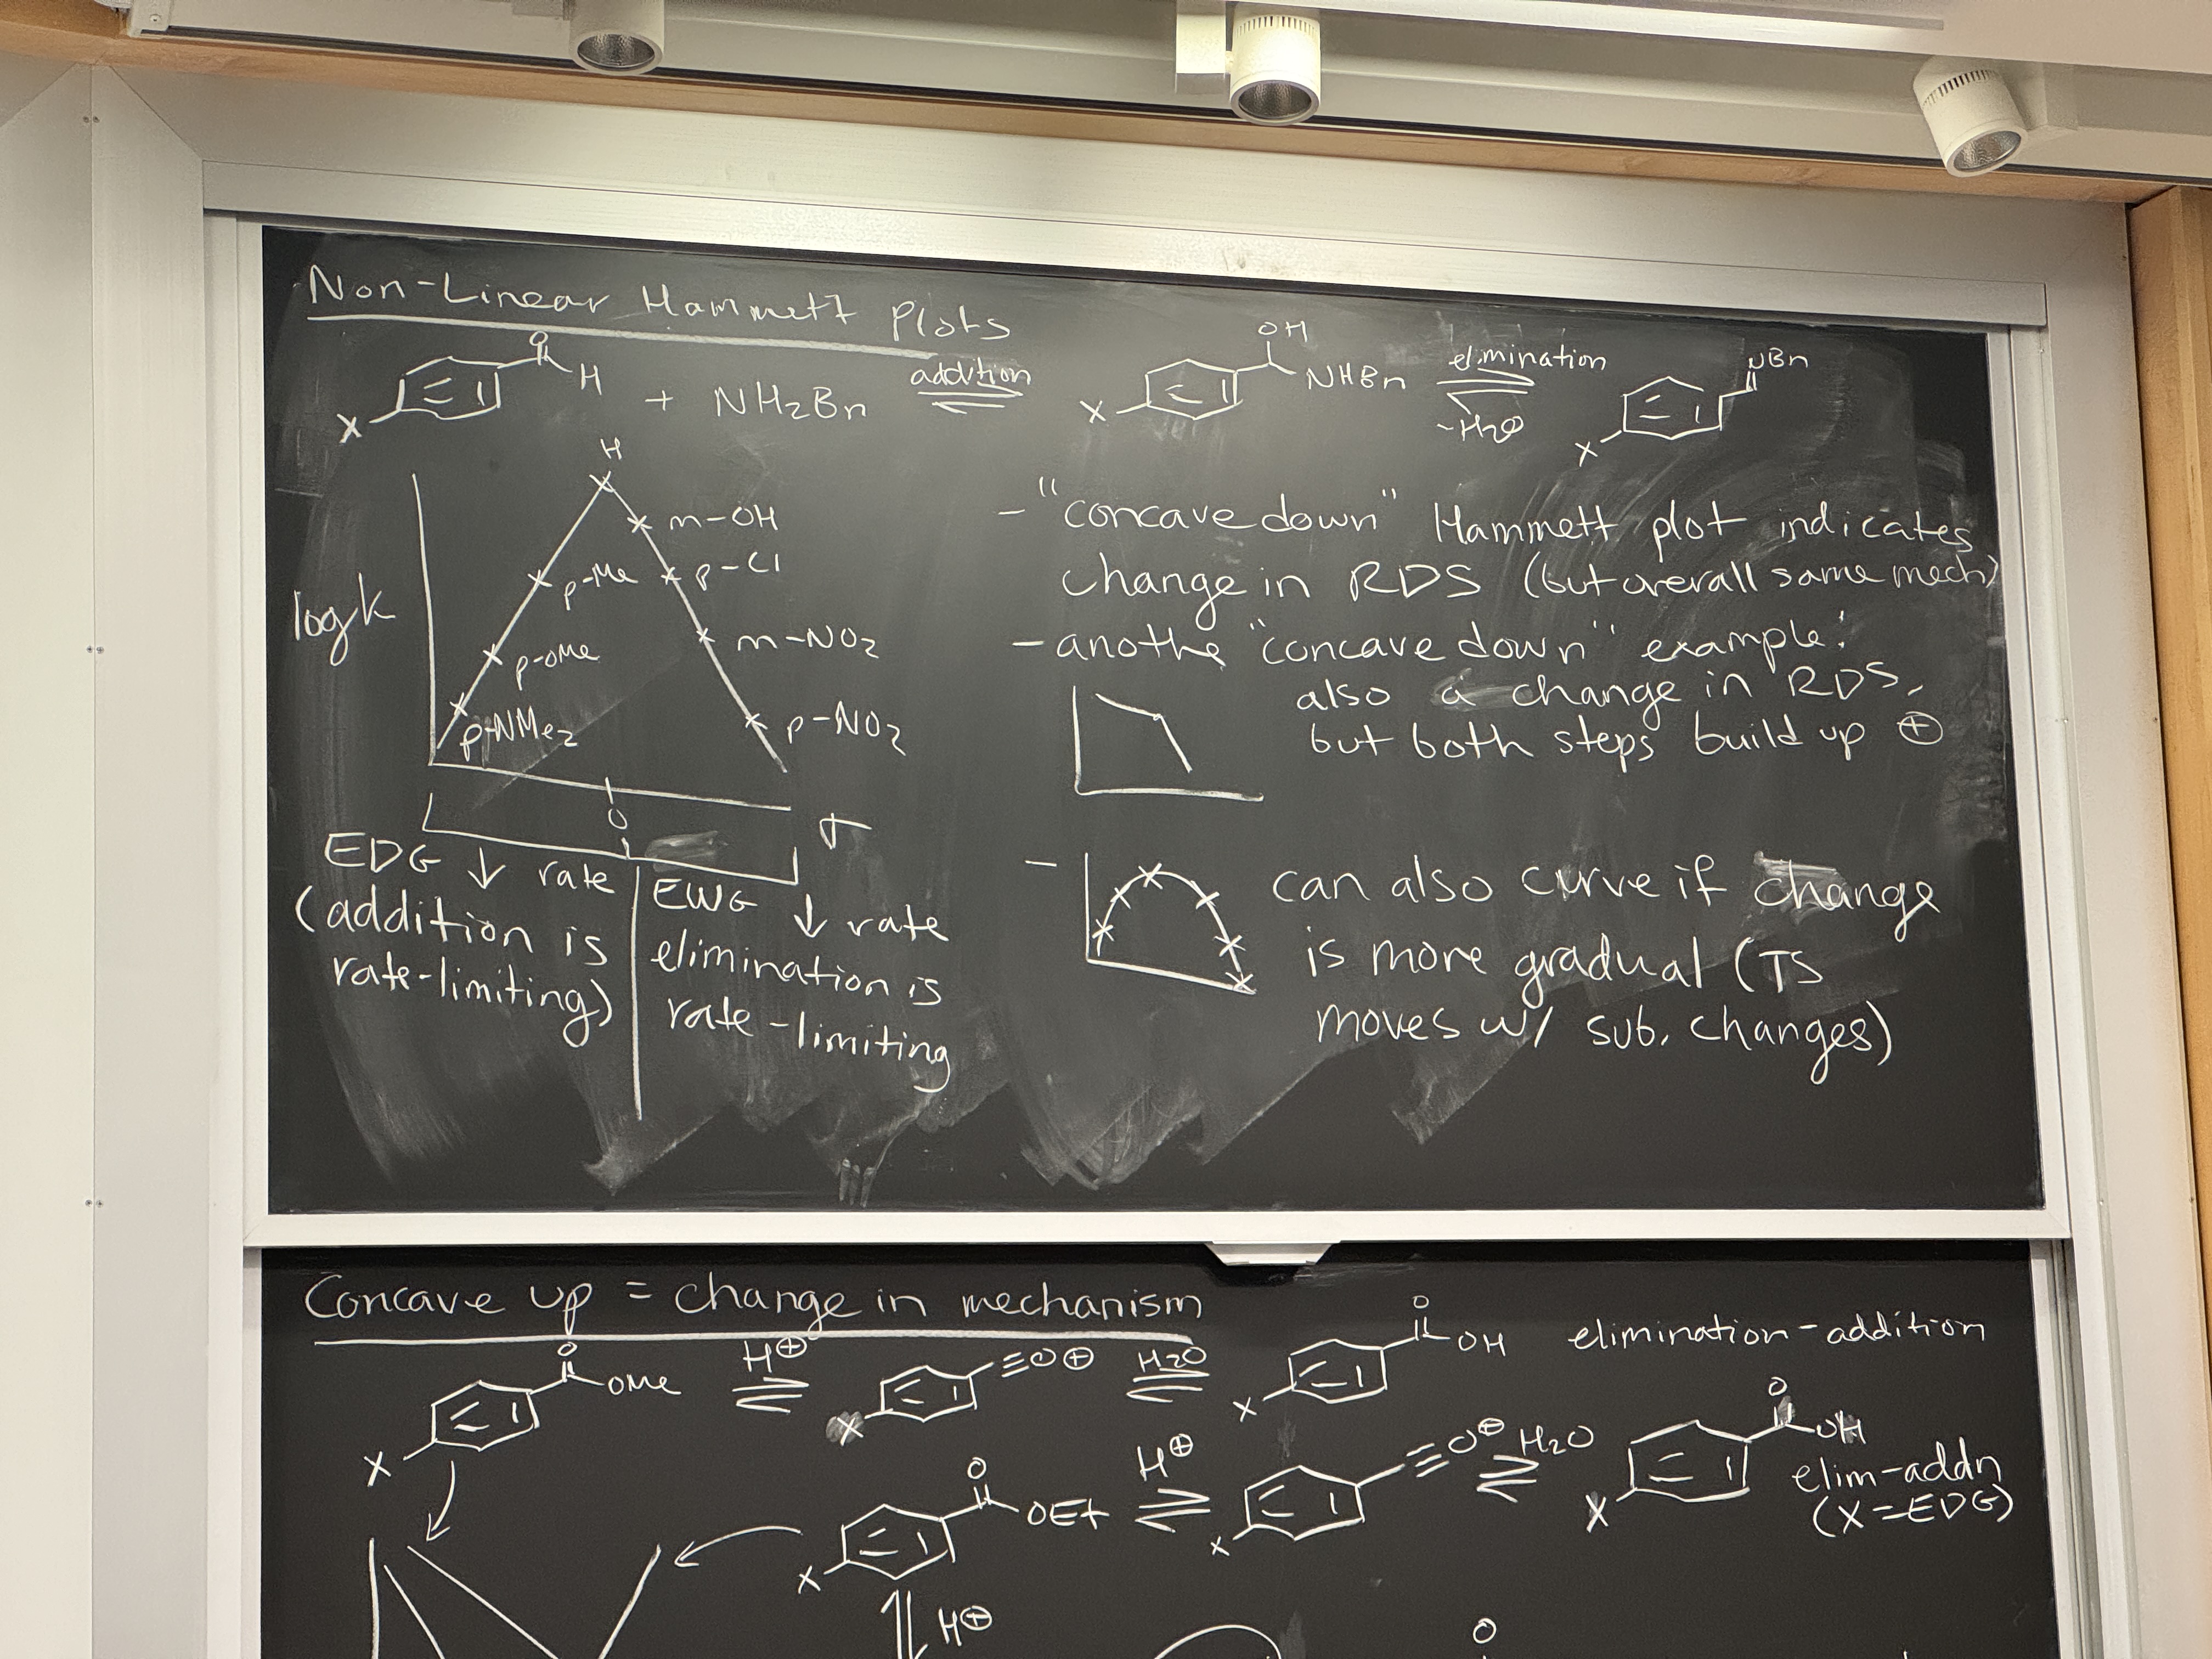 Non-Linear Hammett Plots
O
H
X
+ NH2Bn
addition
OH
NHBn
X
elimination
-H2O
NBn
X
log k
H
m-OH
p-Me
p-Cl
p-OMe
m-NO2
p-NMe2
p-NO2
0
σ
EDG ↓ rate
(addition is
rate-limiting)
EWG ↓ rate
elimination is
rate-limiting
- "concave down" Hammett plot indicates
change in RDS (but overall same mech)
- anothe "concave down" example:
also a change in RDS,
but both steps build up ⊕
- can also curve if change
is more gradual (TS
moves w/ sub. changes)
Concave up = change in mechanism
O
OMe
X
H⊕
≡O⊕
X
H2O
O
OH
X
elimination-addition
O
OEt
X
H⊕
≡O⊕
X
H2O
O
OH
X
elim-addn
(X=EDG)
H⊕
O